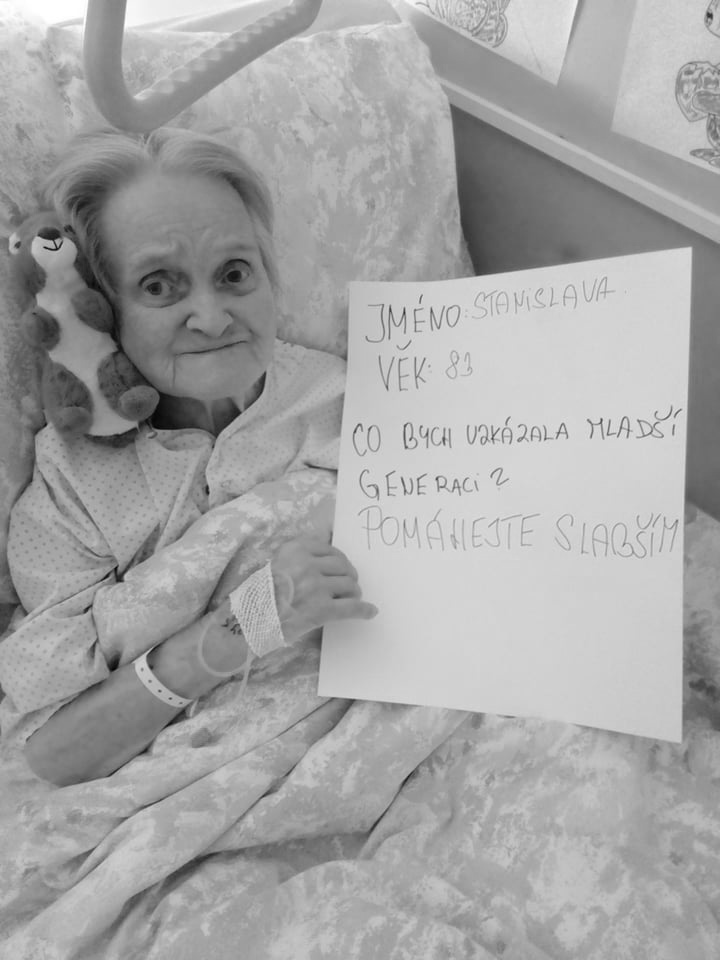 JMÉNO: STANISLAVA.
VĚK: 83
CO BYCH VZKÁZALA MLADŠÍ
GENERACi?
POMÁHEJTE SLABŠÍM